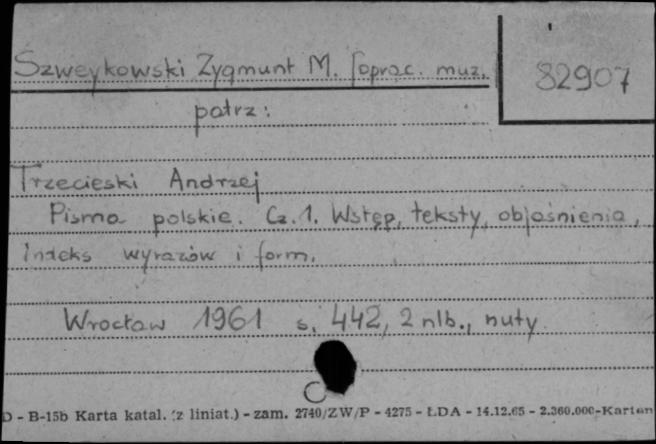 Szweykowski Zygmunt M. [oprac. muz.
82907
patrz:
Trzecieski Andrzej
Pisma polskie. Cz. 1. Wstęp, teksty, objaśnienia,
indeks wyrazów i form.
Wrocław 1961 s. 442, 2 nlb., nuty.
D - B-15b Karta katal. (z liniat.) - zam. 2740/ZW/P - 4275 - ŁDA - 14.12.65 - 2.360.000-Karton